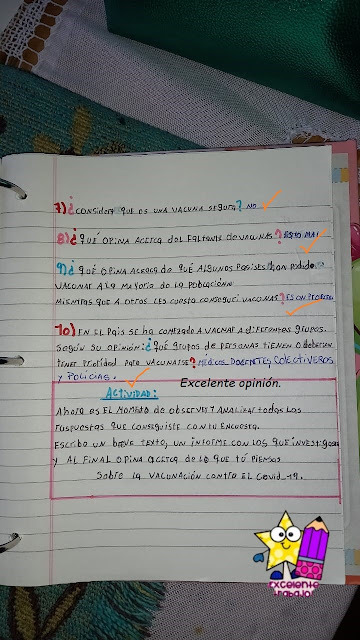 7) ¿CONSIDERA QUE ES UNA VACUNA SEGURA? NO
8) ¿QUÉ OPINA ACERCA DEL FALTANTE DE VACUNAS? ESTO MAL
9) ¿QUÉ OPINA ACERCA DE QUÉ ALGUNOS PAISES HAN PODIDO
VACUNAR A LA MAYORIA DE LA POBLACIÓN
MIENTRAS QUE A OTROS LES CUESTA CONSEGUI VACUNAS? ES UN PROBLEMA
10) EN EL PAIS SE HA COMENZADO A VACUNAR A DIFERENTES GRUPOS.
SEGÚN SU OPINIÓN: ¿QUÉ GRUPOS DE PERSONAS TIENEN O DEBERIAN
TENER PRIORIDAD PARA VACUNARSE? MÉDICOS, DOCENTES, COLECTIVEROS
Y POLICIAS.
Excelente opinión.
ACTIVIDAD:
Ahora es EL MOMENTO de observer y Analizar todas las
respuestas que conseguiste con tu encuesta.
Escribe un breve texto, un informe con los que investigaste
y al final opina acerca de lo que tú piensas
sobre la vacunación contra el Covid-19.
EXcelente
trabajo!